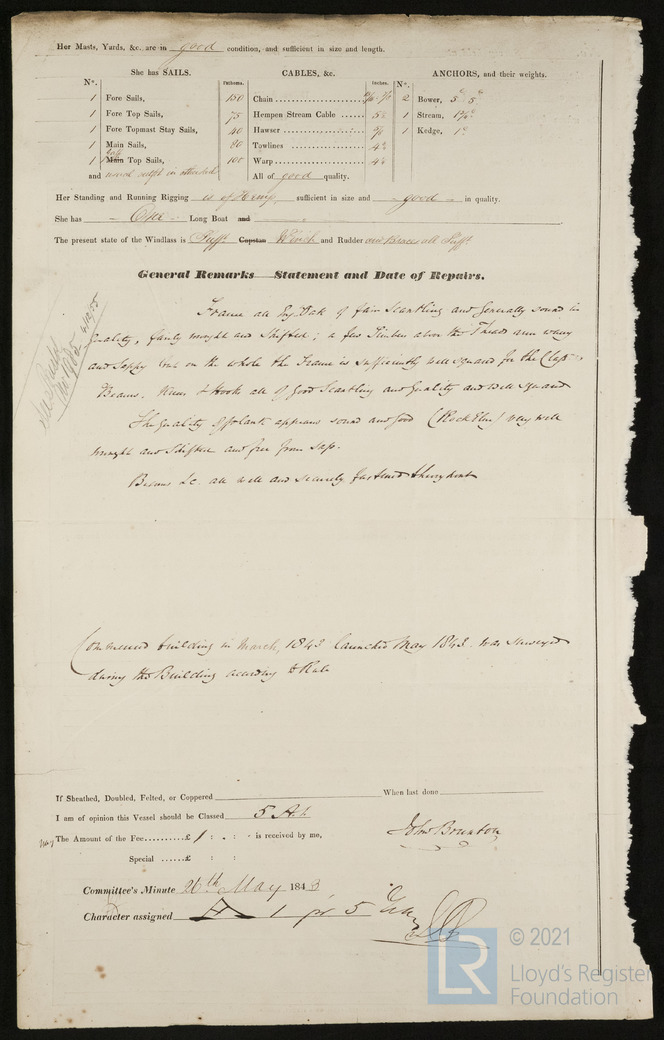 Her Masts, Yards, &c. are in good condition, and sufficient in size and length.
She has SAILS. CABLES, &c. ANCHORS, and their weights.
N°. Fathoms. Inches. N°.
1 Fore Sails, 150 Chain 2 Bower, 5 5
1 Fore Top Sails, 75 Hempen Stream Cable 1 Stream,
1 Fore Topmast Stay Sails, 40 Hawser 1 Kedge, 1
1 Main Sails, 80 Towlines
1 Main Gaff Top Sails, 100 Warp
and usual outfit in All of good quality.
Her Standing and Running Rigging is of Hemp sufficient in size and good in quality.
She has One Long Boat and
The present state of the Windlass is Sufft Capstan Winch and Rudder and Braces all Sufft
General Remarks Statement and Date of Repairs.
Frame all Eng Oak of fair Scantling and generally sound in
quality, fairly wrought and Shifted; a few Timbers above the Heads are waney
and sappy but on the whole the Frame is sufficiently well squared for the Class.
Beams, Knees & Hooks all of good Scantling and quality and well squared
The quality of planks appears sound and good (Rock Elm) very well
wrought and Shifted and free from sap.
Beams &c. all well and securely fastened
Commenced building in March, 1843 launched May 1843. was surveyed
during the Building according to Rule
If Sheathed, Doubled, Felted, or Coppered When last done
I am of opinion this Vessel should be Classed 5 A 1
The Amount of the Fee £ 1 : . : - is received by me,
John Brunton
Special £ : :
Committee's Minute 26th May 1843
Character assigned A 1 for 5 Years
© 2021
LR
Lloyd's Register
Foundation